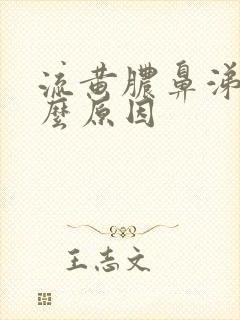 流黄脓鼻涕
麼原因
王志文